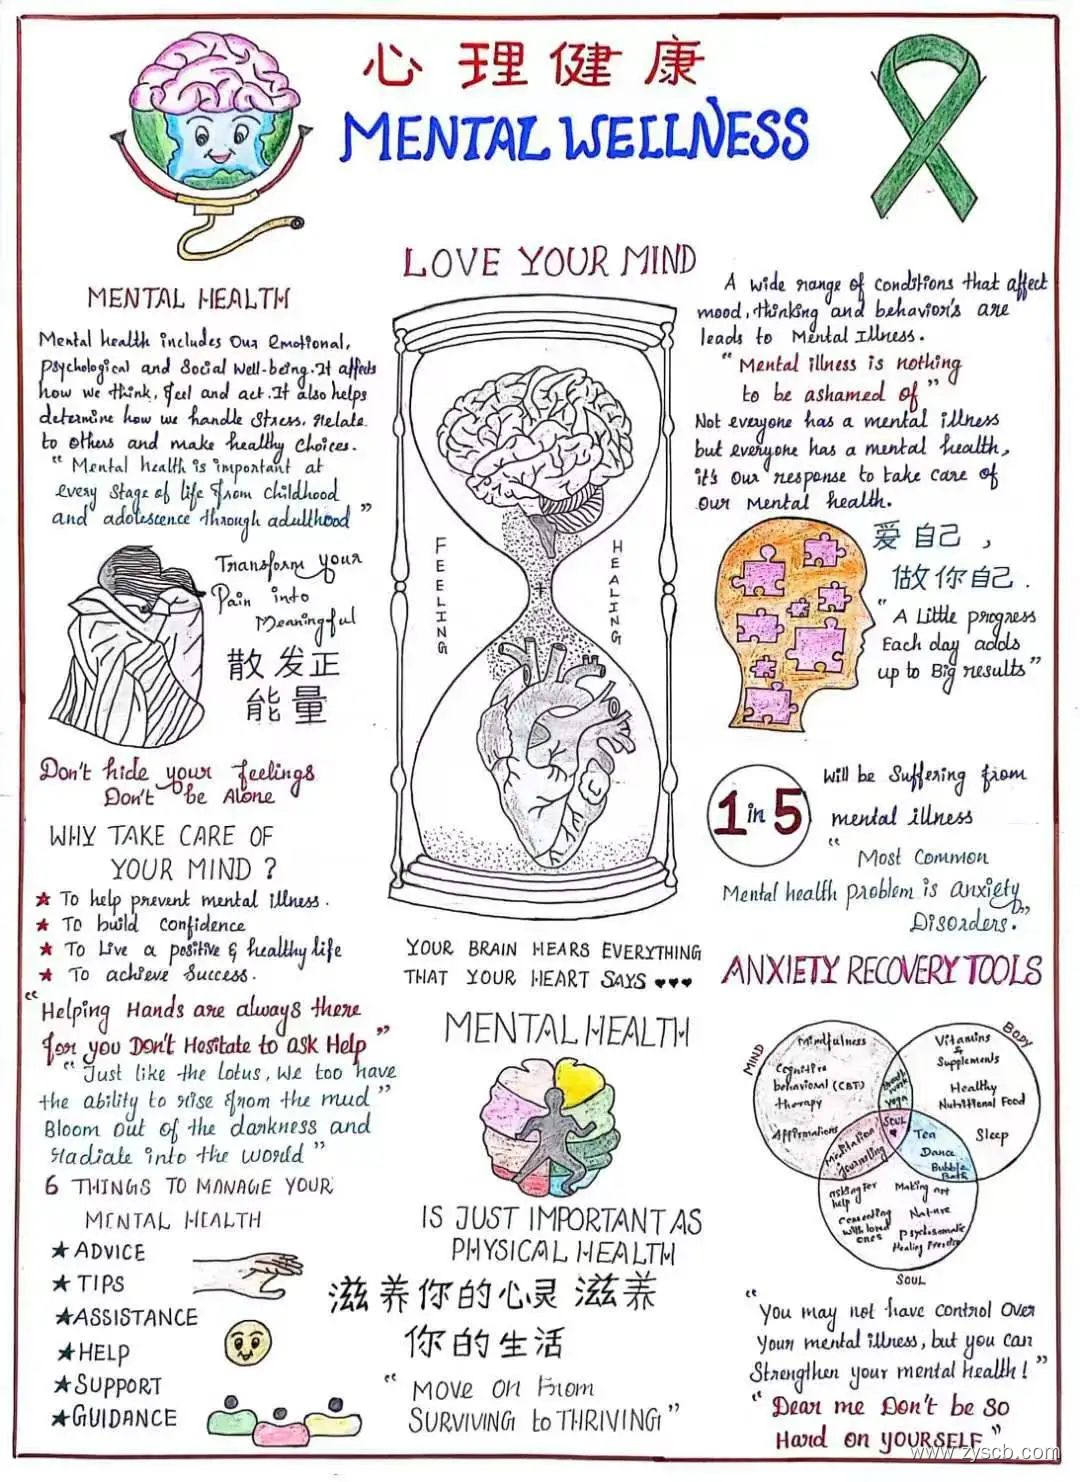 心理健康
MENTAL WELLNESS
LOVE YOUR MIND
MENTAL HEALTH
Mental health includes Our Emotional,
Psychological and Social Well-being. It affects
how we think, feel and act. It also helps
determine how we handle Stress, Relate
to others and make healthy Choices.
" Mental health is important at
every Stage of life from Childhood
and adolescence through adulthood "
Transform your
Pain into
Meaningful
散发正
能量
Don't hide your feelings
Don't be Alone
WHY TAKE CARE OF
YOUR MIND ?
★ To help prevent mental illness.
★ To build confidence
★ To Live a positive & healthy life
★ To achieve Success.
"Helping Hands are always there
for you Don't Hesitate to ask Help "
"Just like the lotus, We too have
the ability to rise from the mud"
Bloom out of the darkness and
Radiate into the world "
6 THINGS TO MANAGE YOUR
MENTAL HEALTH
★ADVICE
★TIPS
★ASSISTANCE
★HELP
★SUPPORT
★GUIDANCE
FEELING
HEALING
YOUR BRAIN HEARS EVERYTHING
THAT YOUR HEART SAYS ♥♥♥
MENTAL HEALTH
IS JUST IMPORTANT AS
PHYSICAL HEALTH
滋养你的心灵 滋养
你的生活
" MOVE ON From
SURVIVING to THRIVING "
A wide range of conditions that affect
mood, thinking and behavior's are
leads to Mental Illness.
" Mental illness is nothing
to be ashamed of "
Not everyone has a mental illness
but everyone has a mental health,
it's Our response to take care of
Our Mental health.
爱自己，
做你自己.
" A Little progress
Each day adds
up to Big results "
1 in 5
Will be Suffering from
mental illness
" Most Common
Mental health problem is anxiety
Disorders."
ANXIETY RECOVERY TOOLS
MIND
BODY
Mindfulness
Cognitive
behavioral (CBT)
therapy
Affirmations
Vitamins
&
Supplements
Healthy
Nutritional Food
Sleep
Breath
work
Yoga
SOUL
♥
Meditation
Journaling
Tea
Dance
Bubble
Bath
asking for
help
Making art
Nature
Connecting
with loved
ones
Psychosomatic
Healing
SOUL
"You may not have control Over
Your mental illness, but you can
Strengthen your mental health ! "
"Dear me Don't be So
Hard on YOURSELF "
www.zyscb.com